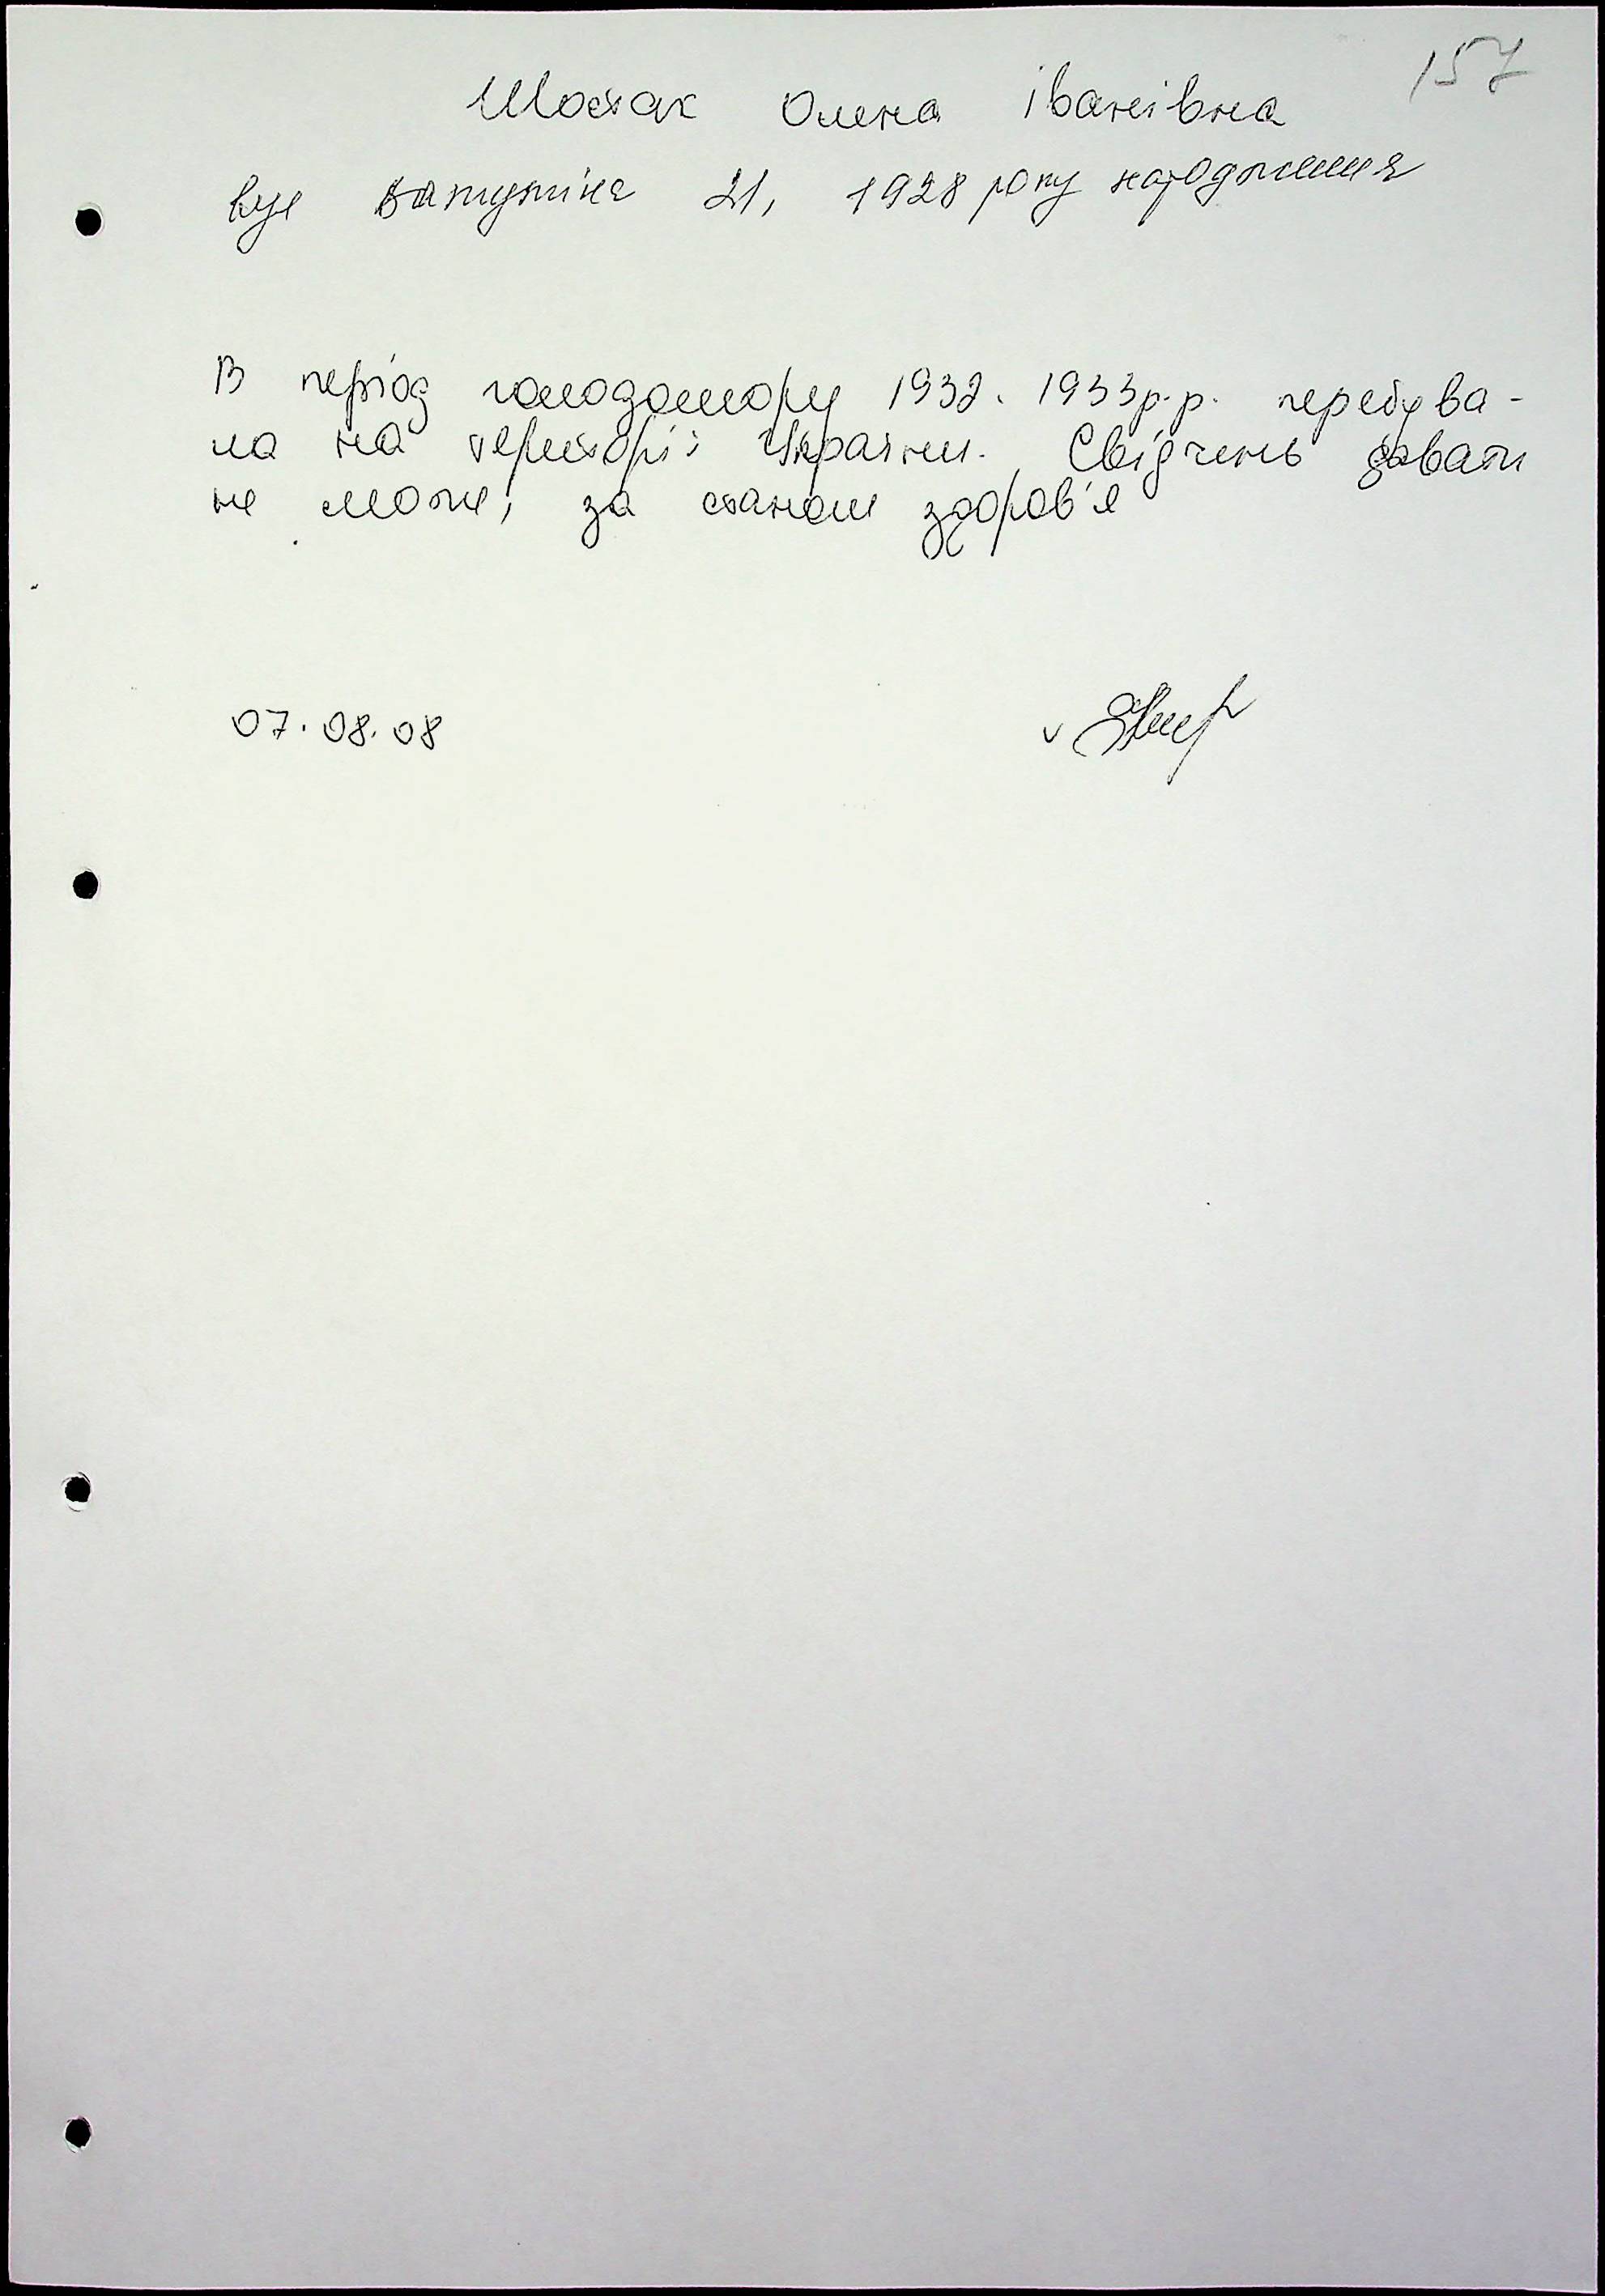 157
Шостак Олена Іванівна
вул Ватутіна 21, 1928 року народження
В період голодомору 1932. 1933р.р. перебува-
ла на території України. Свідчень давати
не може, за станом здоров'я
07.08.08